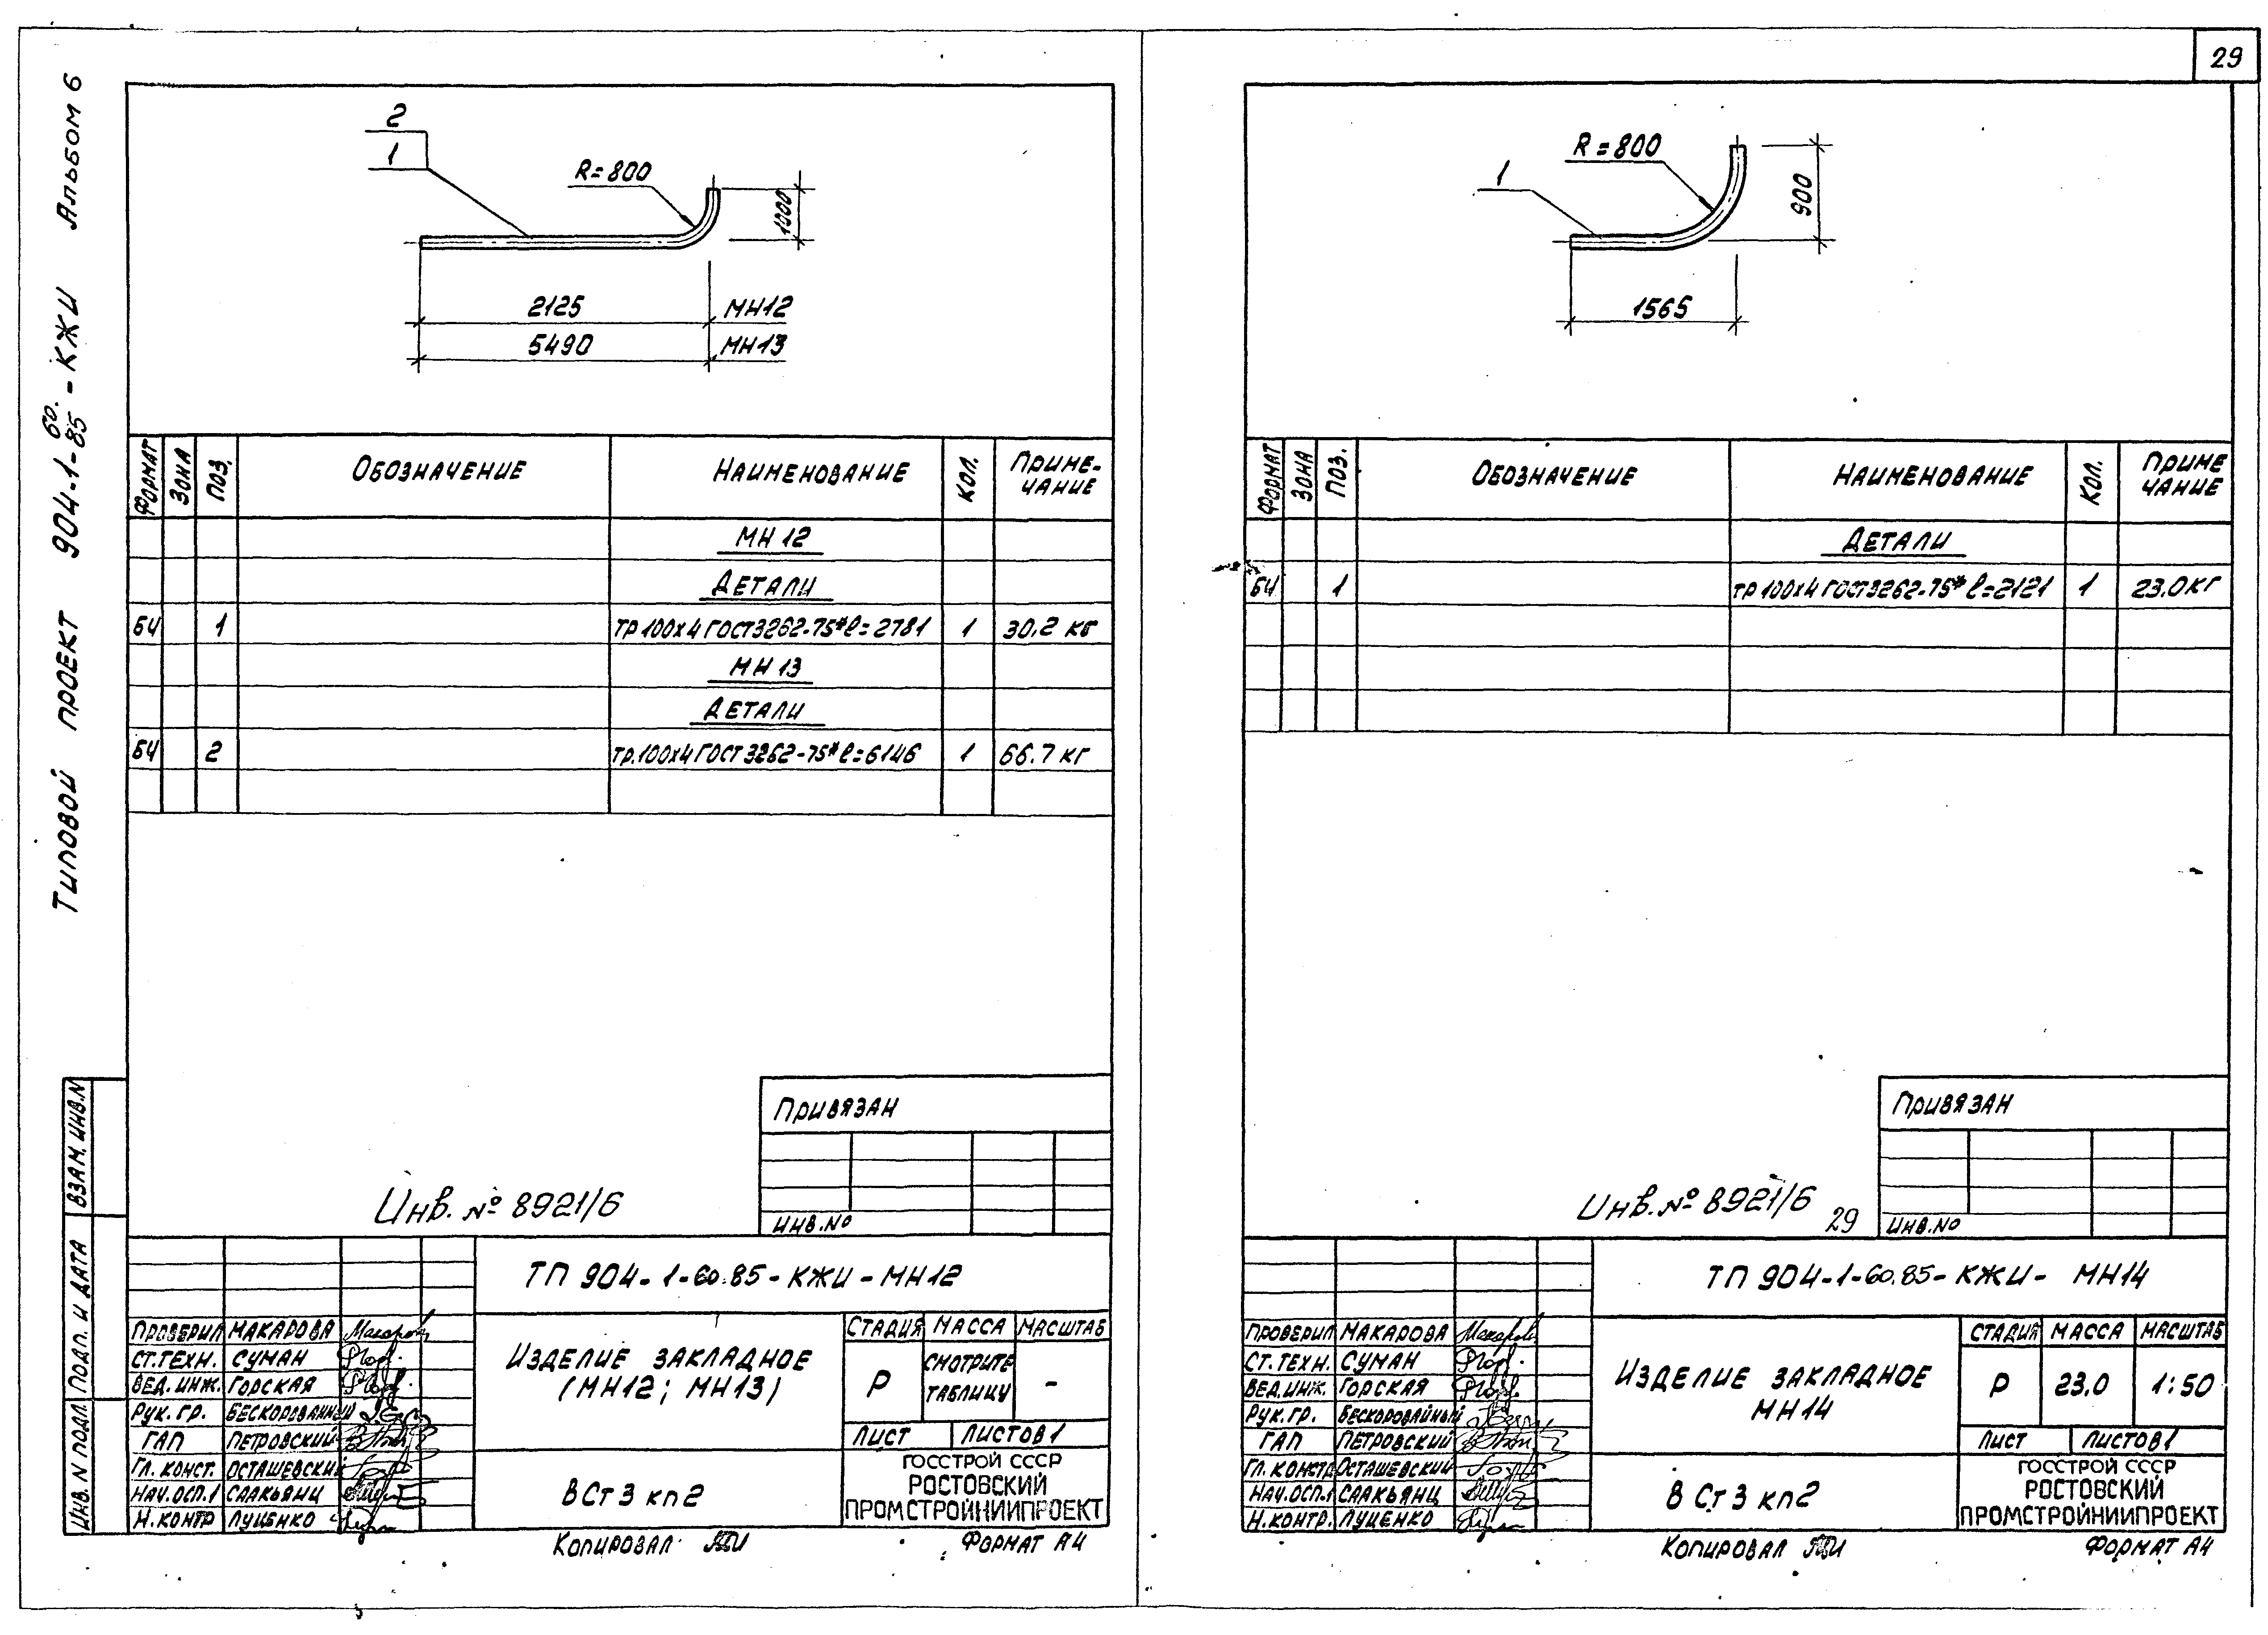 29
Типовой проект 904-1-60.85-КЖИ Альбом 6
2
1
R=800
1000
2125 МН12
5490 МН13
Формат Зона Поз. Обозначение Наименование Кол. Приме-
чание
МН 12
Детали
БЧ 1 Тр 100х4 ГОСТ 3262-75* ℓ=2781 1 30.2 кг
МН 13
Детали
БЧ 2 Тр.100х4 ГОСТ 3262-75* ℓ=6146 1 66.7 кг
Привязан
Инв. № 8921/6
Инв.№
Взам. инв.N
Подп. и дата
Инв. N подл.
ТП 904-1-60.85-КЖИ-МН12
Проверил Макарова
Ст.техн. Суман
Вед.инж. Горская
Рук.гр. Бескоровайный
ГАП Петровский
Гл. конст. Осташевский
Нач.осп.1 Саакьянц
Н.контр Луценко
Изделие закладное
(МН12; МН13)
Стадия Масса Масштаб
Р Смотрите
таблицу -
Лист Листов 1
ВСт3кп2
ГОССТРОЙ СССР
РОСТОВСКИЙ
ПРОМСТРОЙНИИПРОЕКТ
Копировал
Формат А4
1
R=800
900
1565
Формат Зона Поз. Обозначение Наименование Кол. Приме
чание
Детали
БЧ 1 Тр 100х4 ГОСТ 3262-75* ℓ=2121 1 23.0 кг
Привязан
Инв. № 8921/6 29
Инв.№
ТП 904-1-60.85-КЖИ- МН14
Проверил Макарова
Ст.техн. Суман
Вед.инж. Горская
Рук.гр. Бескоровайный
ГАП Петровский
Гл. констр Осташевский
Нач.осп.1 Саакьянц
Н.контр. Луценко
Изделие закладное
МН14
Стадия Масса Масштаб
Р 23.0 1:50
Лист Листов 1
ВСт3кп2
ГОССТРОЙ СССР
РОСТОВСКИЙ
ПРОМСТРОЙНИИПРОЕКТ
Копировал
Формат А4